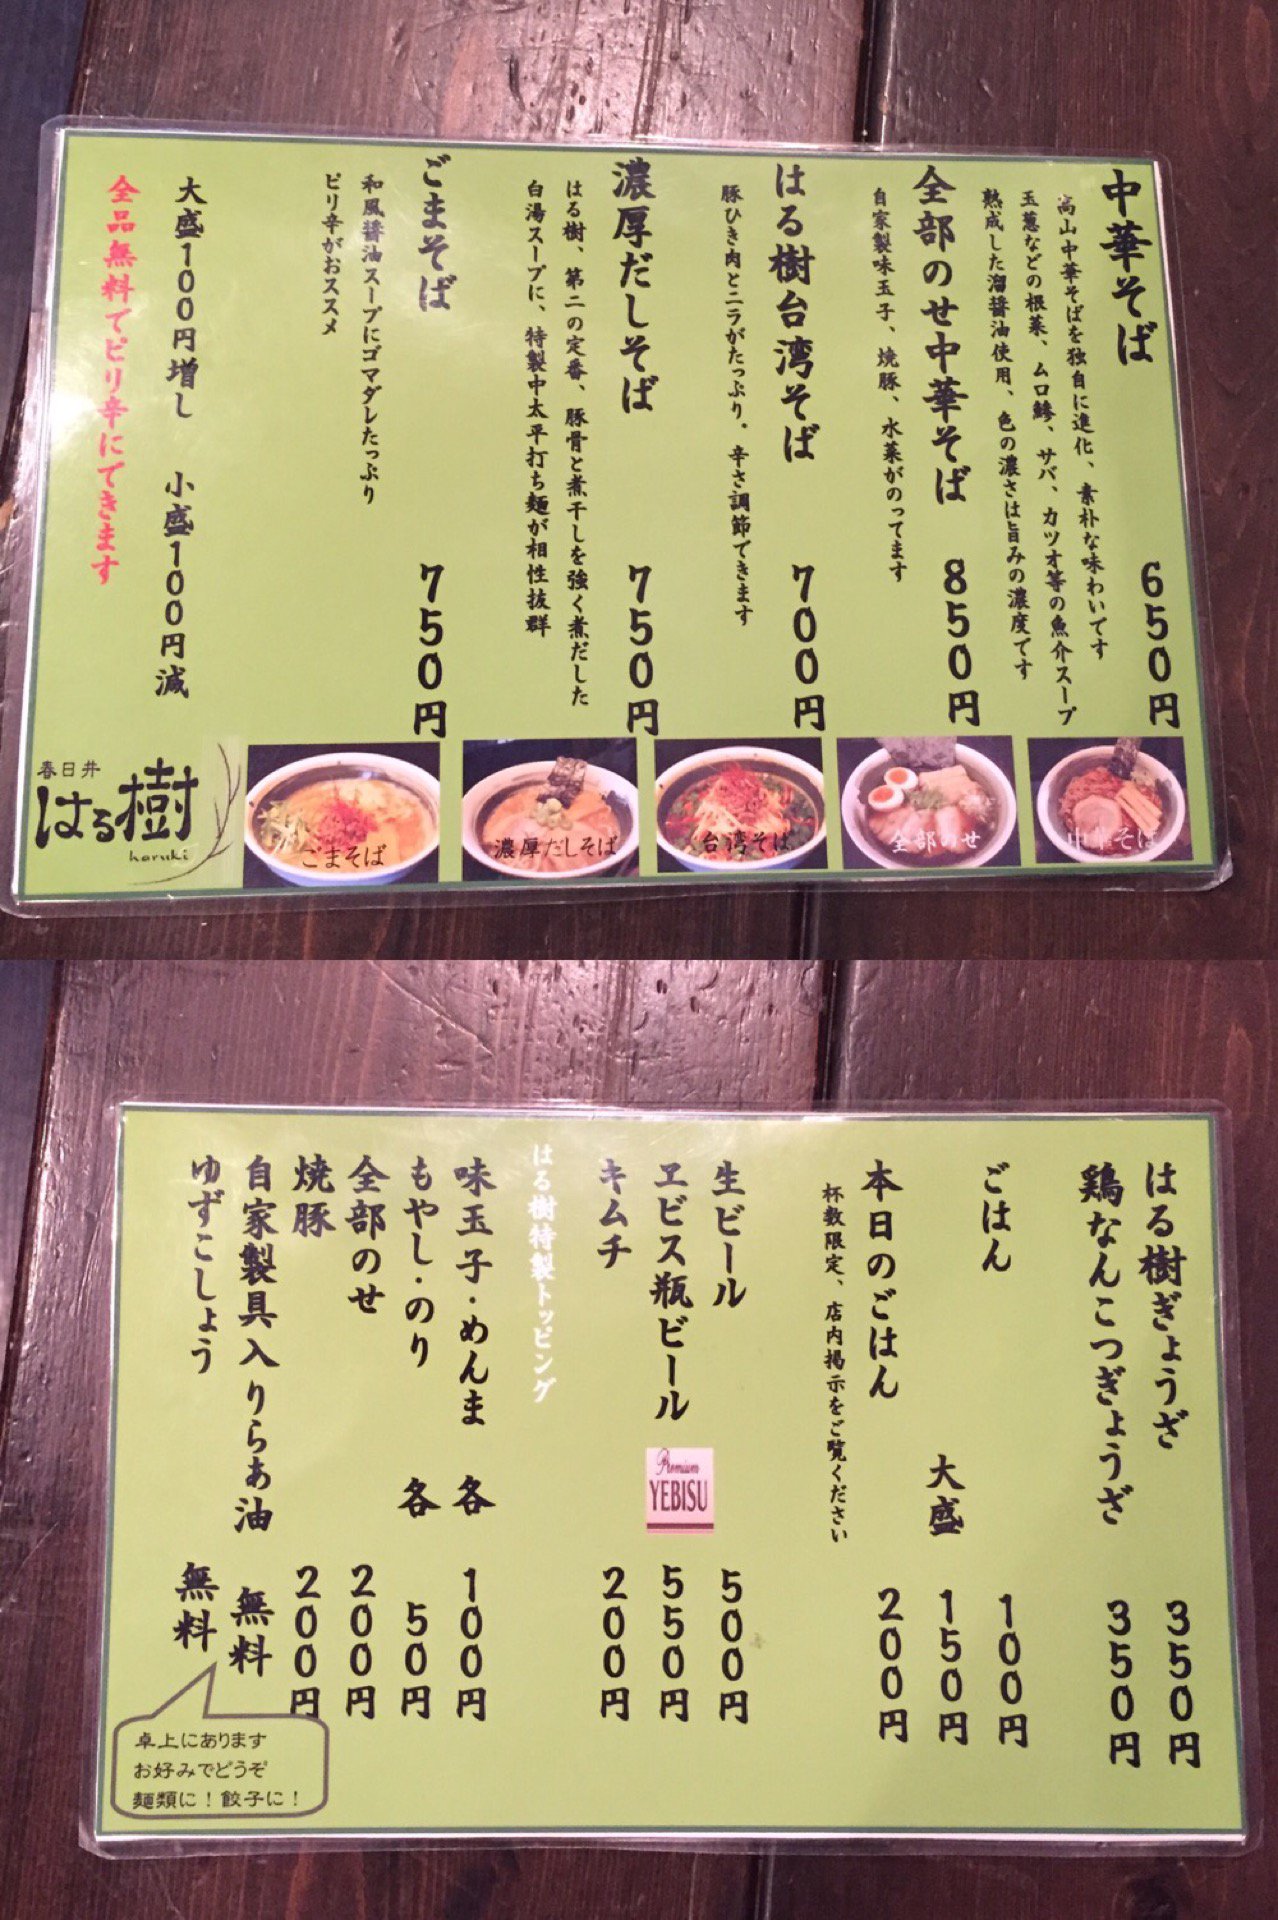 中華そば 650円
高山中華そばを独自に進化、素朴な味わいです
玉葱などの根菜、ムロ鰺、サバ、カツオ等の魚介スープ
熟成した溜醤油使用、色の濃さは旨みの濃度です
全部のせ中華そば 850円
自家製味玉子、焼豚、水菜がのってます
はる樹台湾そば 700円
豚ひき肉とニラがたっぷり。辛さ調節できます
濃厚だしそば 750円
はる樹、第二の定番、豚骨と煮干しを強く煮だした
白湯スープに、特製中太平打ち麺が相性抜群
ごまそば 750円
和風醤油スープにゴマダレたっぷり
ピリ辛がおススメ
大盛100円増し 小盛100円減
全品無料でピリ辛にできます
中華そば
全部のせ
台湾そば
濃厚だしそば
ごまそば
春日井
はる樹
haruki
はる樹ぎょうざ 350円
鶏なんこつぎょうざ 350円
ごはん 100円
大盛 150円
本日のごはん 200円
杯数限定、店内掲示をご覧ください
生ビール 500円
ヱビス瓶ビール 550円
Premium
YEBISU
キムチ 200円
はる樹特製トッピング
味玉子・めんま 各 100円
もやし・のり 各 50円
全部のせ 200円
焼豚 200円
自家製具入りらあ油 無料
ゆずこしょう 無料
卓上にあります
お好みでどうぞ
麺類に!餃子に!